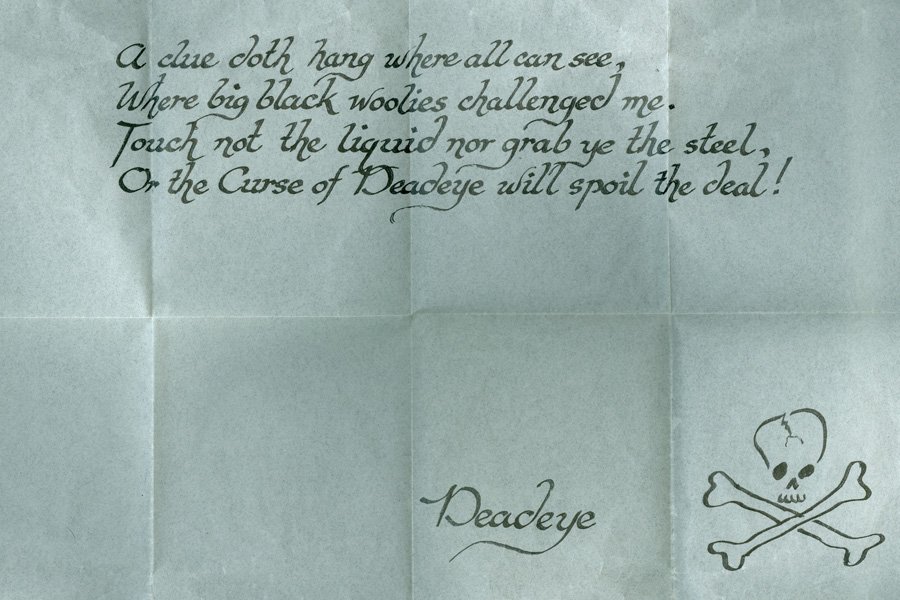 A clue doth hang where all can see,
Where big black woolies challenged me.
Touch not the liquid nor grab ye the steel,
Or the Curse of Deadeye will spoil the deal!
Deadeye